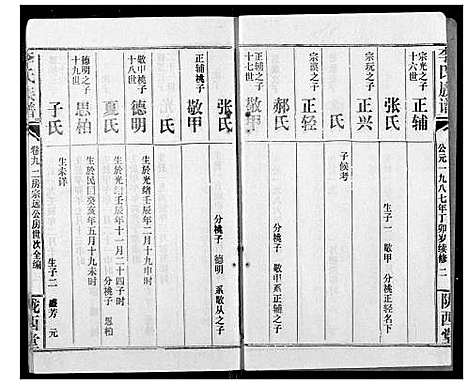 李氏族谱
公元一九八七年丁卯岁续修 二
陇西堂
宗光之子
十六世
正辅
张氏
生子一 敬甲 分桃正轻名下
宗玩之子
正兴
子候考
宗汉之子
正轻
郝氏
分桃子 敬甲 系正辅之子
正辅之子
十七世
敬甲
张氏
分桃子 德明 系敬从之子
正辅桃子
敬甲
氏
生于光绪壬辰年二月十九申时
敬甲桃子
十八世
德明
生于光绪壬辰年十一月二十四子时
夏氏
分桃子 思柏
德明之子
十九世
思柏
生于民国癸亥年五月十九未时
子氏
生未详
生子二 芳 元
李氏族谱
卷九 二房宗远公房世次全编
陇西堂